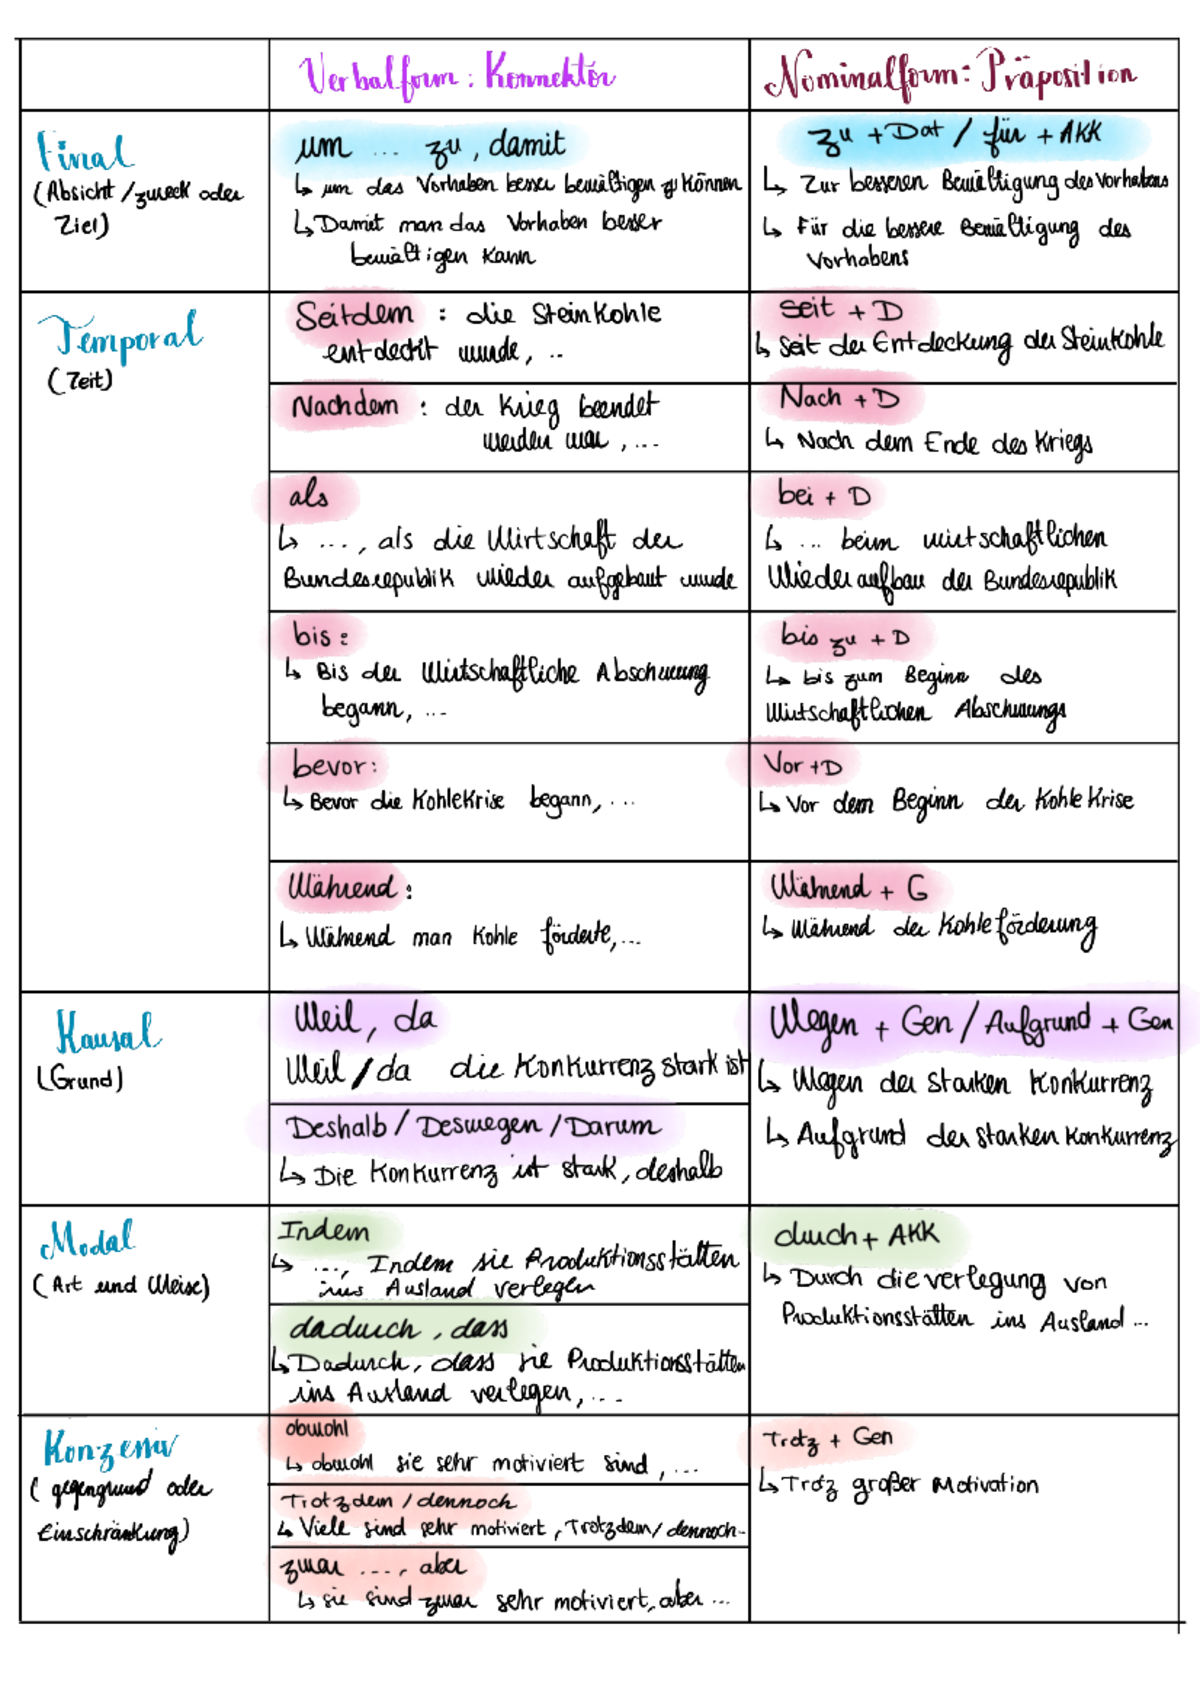 Verbalform: Konnektor
Nominalform: Präposition
Final
(Absicht/zweck oder
Ziel)
um ... zu, damit
↳ um das Vorhaben besser bewältigen zu können
↳ Damit man das Vorhaben besser
bewältigen kann
zu + Dat / für + AKK
↳ Zur besseren Bewältigung des Vorhabens
↳ Für die bessere Bewältigung des
Vorhabens
Temporal
(Zeit)
Seitdem : die Steinkohle
entdeckt wurde, ..
seit + D
↳ Seit der Entdeckung der Steinkohle
Nachdem : der Krieg beendet
werden war, ...
Nach + D
↳ Nach dem Ende des Kriegs
als
↳ ..., als die Wirtschaft der
Bundesrepublik wieder aufgebaut wurde
bei + D
↳ ... beim wirtschaftlichen
Wiederaufbau der Bundesrepublik
bis :
↳ Bis der Wirtschaftliche Abschwung
begann, ...
bis zu + D
↳ bis zum Beginn des
Wirtschaftlichen Abschwungs
bevor:
↳ Bevor die Kohlekrise begann, ...
Vor +D
↳ Vor dem Beginn der Kohle Krise
Während :
↳ Während man Kohle förderte, ...
Während + G
↳ Während der Kohleförderung
Kausal
(Grund)
Weil, da
Weil / da die Konkurrenz stark ist
Deshalb / Deswegen / Darum
↳ Die Konkurrenz ist stark, deshalb
Wegen + Gen / Aufgrund + Gen
↳ Wegen der starken Konkurrenz
↳ Aufgrund der starken Konkurrenz
Modal
(Art und Weise)
Indem
↳ ..., Indem sie Produktionsstätten
ins Ausland verlegen
dadurch, dass
↳ Dadurch, dass sie Produktionsstätten
ins Ausland verlegen, ...
durch + AKK
↳ Durch die verlegung von
Produktionsstätten ins Ausland ...
Konzessiv
(gegengrund oder
Einschränkung)
obwohl
↳ obwohl sie sehr motiviert sind, ...
Trotzdem / dennoch
↳ Viele sind sehr motiviert, Trotzdem/ dennoch-
zwar ..., aber
↳ sie sind zwar sehr motiviert, aber ...
Trotz + Gen
↳ Trotz großer Motivation